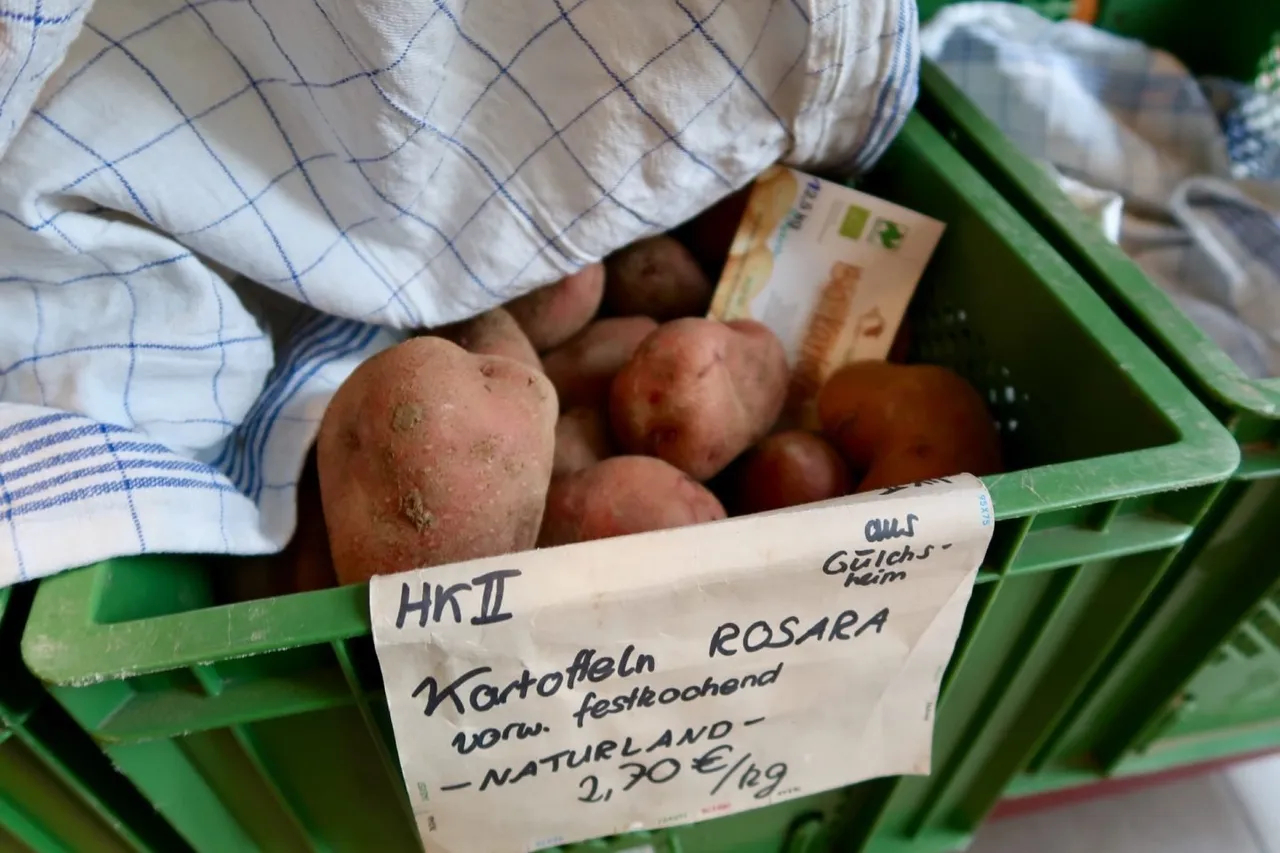 12.5 kg
HK II
aus
Gülchs-
heim
Kartoffeln ROSARA
vorw. festkochend
- NATURLAND -
2,70 €/kg